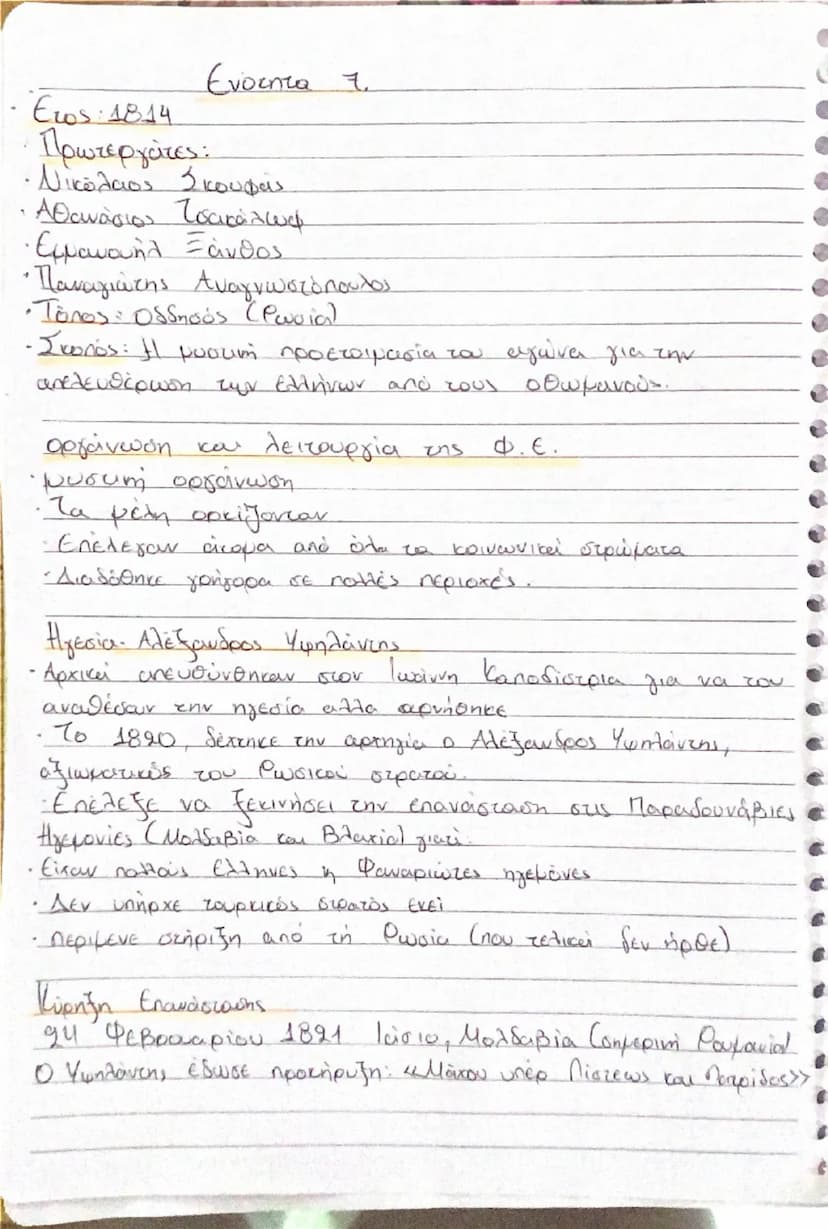 Ενότητα 7.
· Ετος: 1814
· Πρωτεργάτες:
· Νικόλαος Σκουφάς
· Αθανάσιος Τσακάλωφ
· Εμμανουήλ Ξάνθος
· Παναγιώτης Αναγνωστόπουλος
· Τόπος: Οδδησός (Ρωσία)
- Σκοπός: Η μυστική προετοιμασία του αγώνα για την
απελευθέρωση των Ελλήνων από τους οθωμανούς.
οργάνωση και λειτουργία της Φ.Ε.
· μυστική οργάνωση
· Τα μέλη ορκίζονταν
· Επέλεγαν άτομα από όλα τα κοινωνικά στρώματα
· Διαδόθηκε γρήγορα σε πολλές περιοχές.
Ηγεσία- Αλέξανδρος Υψηλάντης
- Αρχικά απευθύνθηκαν στον Ιωάννη Καποδίστρια για να του
αναθέσουν την ηγεσία αλλα αρνήθηκε
· Το 1820, δέχτηκε την αρχηγία ο Αλέξανδρος Υψηλάντης,
αξιωματικός του Ρωσικού στρατού.
· Επέλεξε να ξεκινήσει την επανάσταση στις Παραδουνάβιες
Ηγεμονίες (Μολδαβία και Βλαχία) γιατί.
· Είχαν πολλούς Έλληνες η Φαναριώτες ηγεμόνες
· Δεν υπήρχε τουρκικός στρατός εκεί
· περίμενε στήριξη από τή Ρωσία (που τελικά δεν ήρθε)
Κύρηξη Επανάστασης
24 Φεβρουαρίου 1821 Ιάσιο, Μολδαβία (σημερινή Ρουμανία)
Ο Υψηλάντης έδωσε προκήρυξη: «Μάχου υπέρ Πίστεως και Πατρίδος»